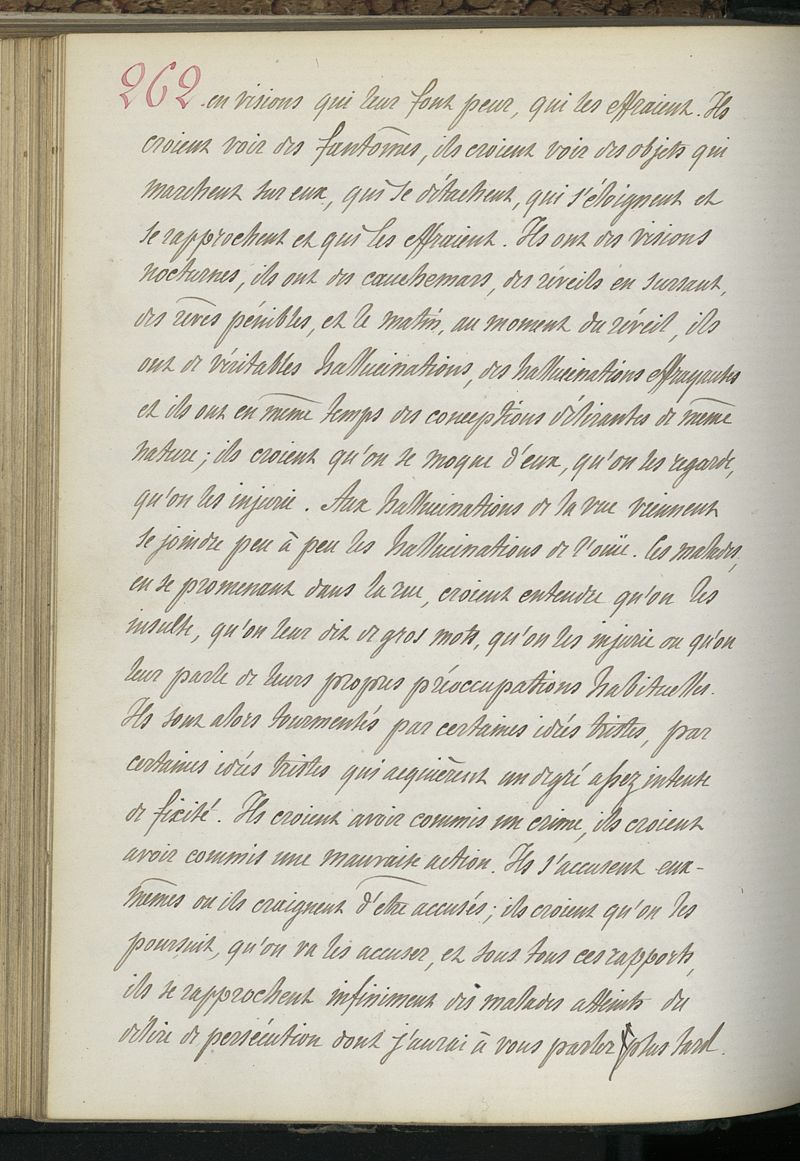 262. en visions qui leur font peur, qui les effraient. Ils
croient voir des fantômes, ils croient voir des objets qui
marchent sur eux, qui se détachent, qui s'éloignent et
se rapprochent et qui les effraient. Ils ont des visions
nocturnes, ils ont des cauchemars, des réveils en sursaut,
des rêves pénibles, et le matin, au moment du réveil, ils
ont de véritables hallucinations, des hallucinations effrayantes
et ils ont en même temps des conceptions délirantes de même
nature; ils croient qu'on se moque d'eux, qu'on les regarde,
qu'on les injurie. Aux hallucinations de la vue viennent
se joindre peu à peu les hallucinations de l'ouïe. Ces malades,
en se promenant dans la rue, croient entendre qu'on les
insulte, qu'on leur dit de gros mots, qu'on les injurie ou qu'on
leur parle de leurs propres préoccupations habituelles.
Ils sont alors tourmentés par certaines idées tristes, par
certaines idées tristes qui acquièrent un degré assez intense
de fixité. Ils croient avoir commis un crime, ils croient
avoir commis une mauvaise action. Ils s'accusent eux-
mêmes ou ils craignent d'être accusés; ils croient qu'on les
poursuit, qu'on va les accuser, et sous tous ces rapports,
ils se rapprochent infiniment des malades atteints du
délire de persécution dont j'aurai à vous parler plus tard.